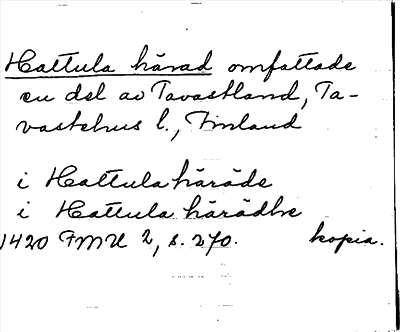 Hattula härad omfattade
en del av Tavastland, Ta-
vastehus l., Finland
i Hattula häräde
i Hattula härädhe
1420 FMU 2, s. 270. kopia.